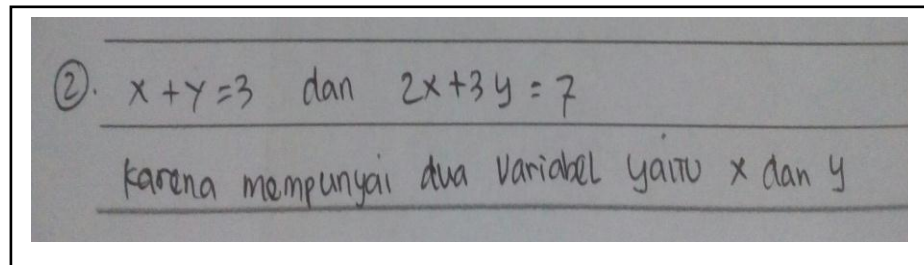 ②. x + y = 3 dan 2x + 3y = 7
karena mempunyai dua variabel yaitu x dan y